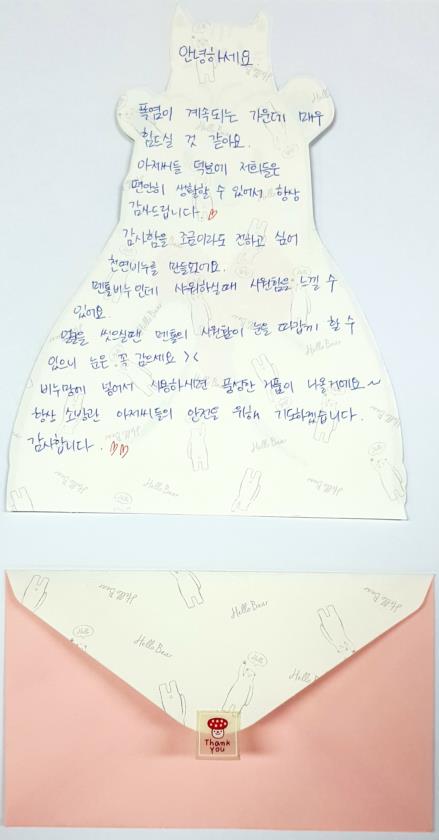 안녕하세요.
폭염이 계속되는 가운데 매우
힘드실 것 같아요.
아저씨들 덕분에 저희들은
편안히 생활할 수 있어서 항상
감사드립니다.
감사함을 조금이라도 전하고 싶어
천연비누를 만들었어요.
멘톨비누인데 샤워하실때 시원함을 느낄 수
있어요.
얼굴을 씻으실땐 멘톨의 시원함이 눈을 따갑게 할 수
있으니 눈은 꼭 감으세요 > <
비누망에 넣어서 사용하시면 풍성한 거품이 나올거예요~
항상 소방관 아저씨들의 안전을 위해 기도하겠습니다.
감사합니다.
Hello Bear
Hello Bear
Hello Bear
Hello Bear
Hello
Hello
Thank
you